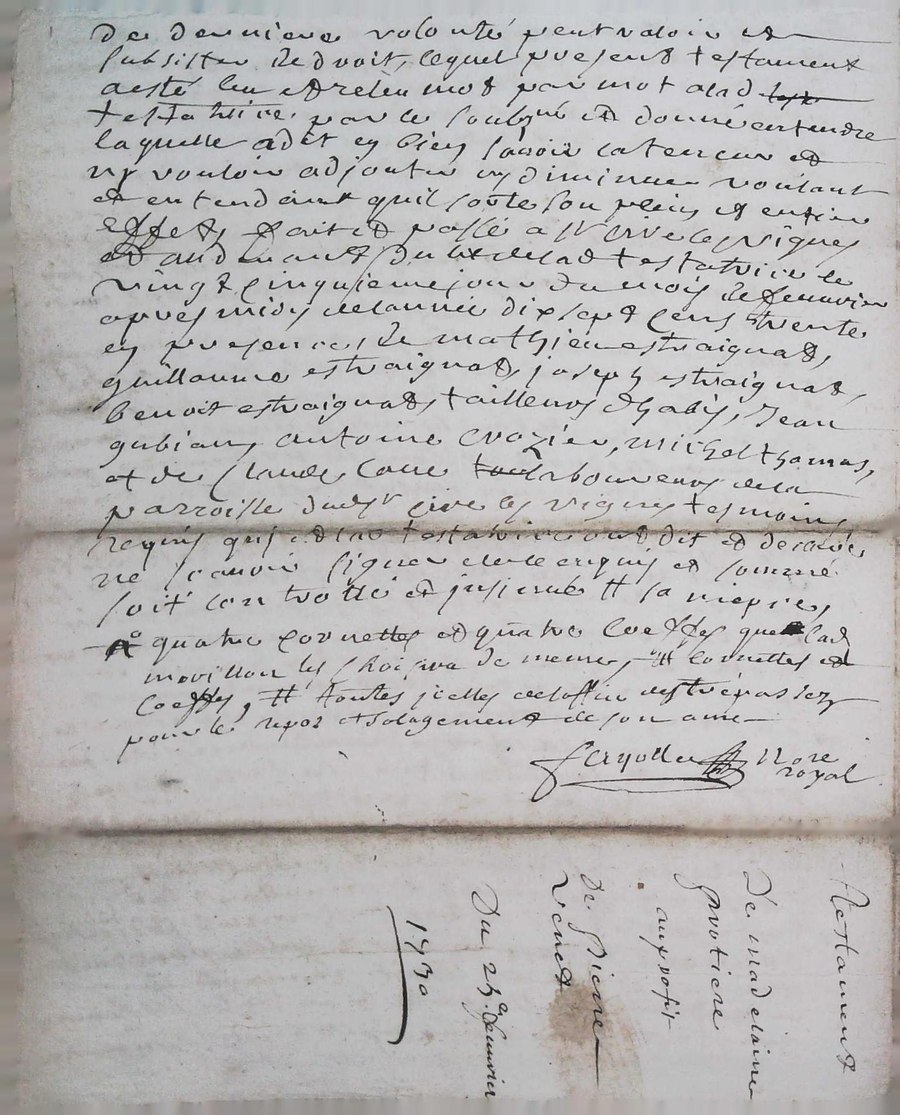 de derniere volonté peut valoir et
subsister de droit, lequel present testament
a esté leu et releu mot par mot a lad
testatrice par le soubsné et donné entendre
laquelle a dit en bien savoir la teneur et
ny vouloir adjouter ny diminuer voulant
et entendant quil sorte son plein et entier
effet, fait et passé a st cire les vignes
et au devant du de lad testatrice le
vingt cinquieme jour du mois de fevrier
apres midy de lannée dix sept cens trente
en presence de mathieu estraignat,
guillaume estraignat, joseph estraignat
benoit estraignat, tailleurs dhabis, Jean
gubian, antoine crozier, michel thomas,
et de Claude laboureurs de la
parroisse dud st cire les vignes tesmoins
requis qui et la testatrice ont dit et declaré
ne scavoir signer de ce enquis et sommé
soit controllé et insinué # sa niepce,
quatre cornettes et quatre coeffes que lad
movillon les choisira de meme, # cornettes et
coeffes, # toutes icelles de loffice des trépassez
pour le repos et solagement de son ame
ferjolle Nore
royal
Testament
De madelaine
grutiere
au profit
De Pierre
Venet
Du 25e fevrier
1730